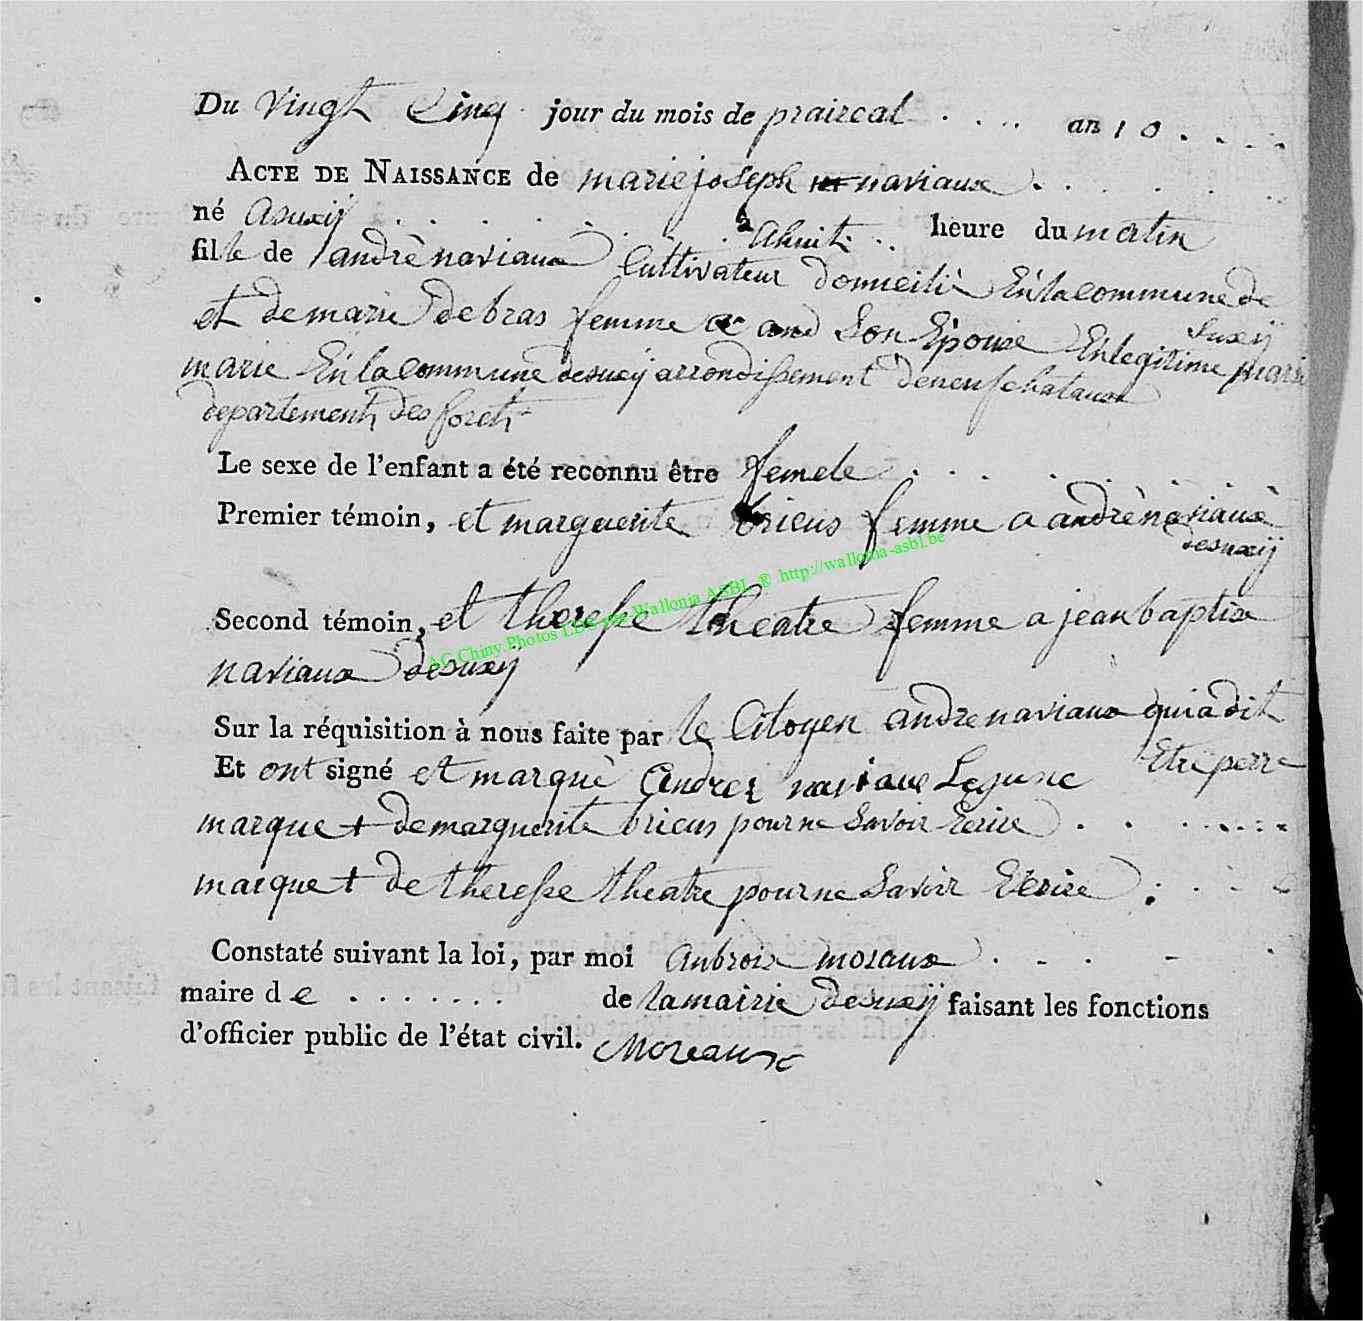 Du vingt Cinq jour du mois de praireal . . . . an 10 . . . .
ACTE DE NAISSANCE de marie joseph naviaux . . . . .
né Asuxÿ . . . . . à Ahuit . . heure du matin
fille de andrè naviaux Cultivateur domicilié En la commune de
Suxÿ
et de marie de bras femme a and Son Epouse En legitime mari
marie En la commune de suxÿ arrondissement de neufchataux
departement des foret
Le sexe de l'enfant a été reconnu être femele . . . . .
Premier témoin, et marguerite brieus femme a andrè naviaux
desuxÿ
Second témoin, et theresse theatre femme a jean baptix
naviaux desuxÿ
AG Chiny Photos LDC pr Wallonia ASBL ® http://wallonia-asbl.be
Sur la réquisition à nous faite par le Citoyen andre naviaux qui a dit
Etre perre
Et ont signé et marquè Andrez naviaux Legune
marque + de marguerite brieus pour ne Savoir Ecrire . . . . . . .
marque + de theresse theatre pour ne Savoir Ecrire . . . .
Constaté suivant la loi, par moi Aubroix moraux . . . . .
maire de . . . . . . . de la mairie de suxÿ faisant les fonctions
d'officier public de l'état civil. Moreaux